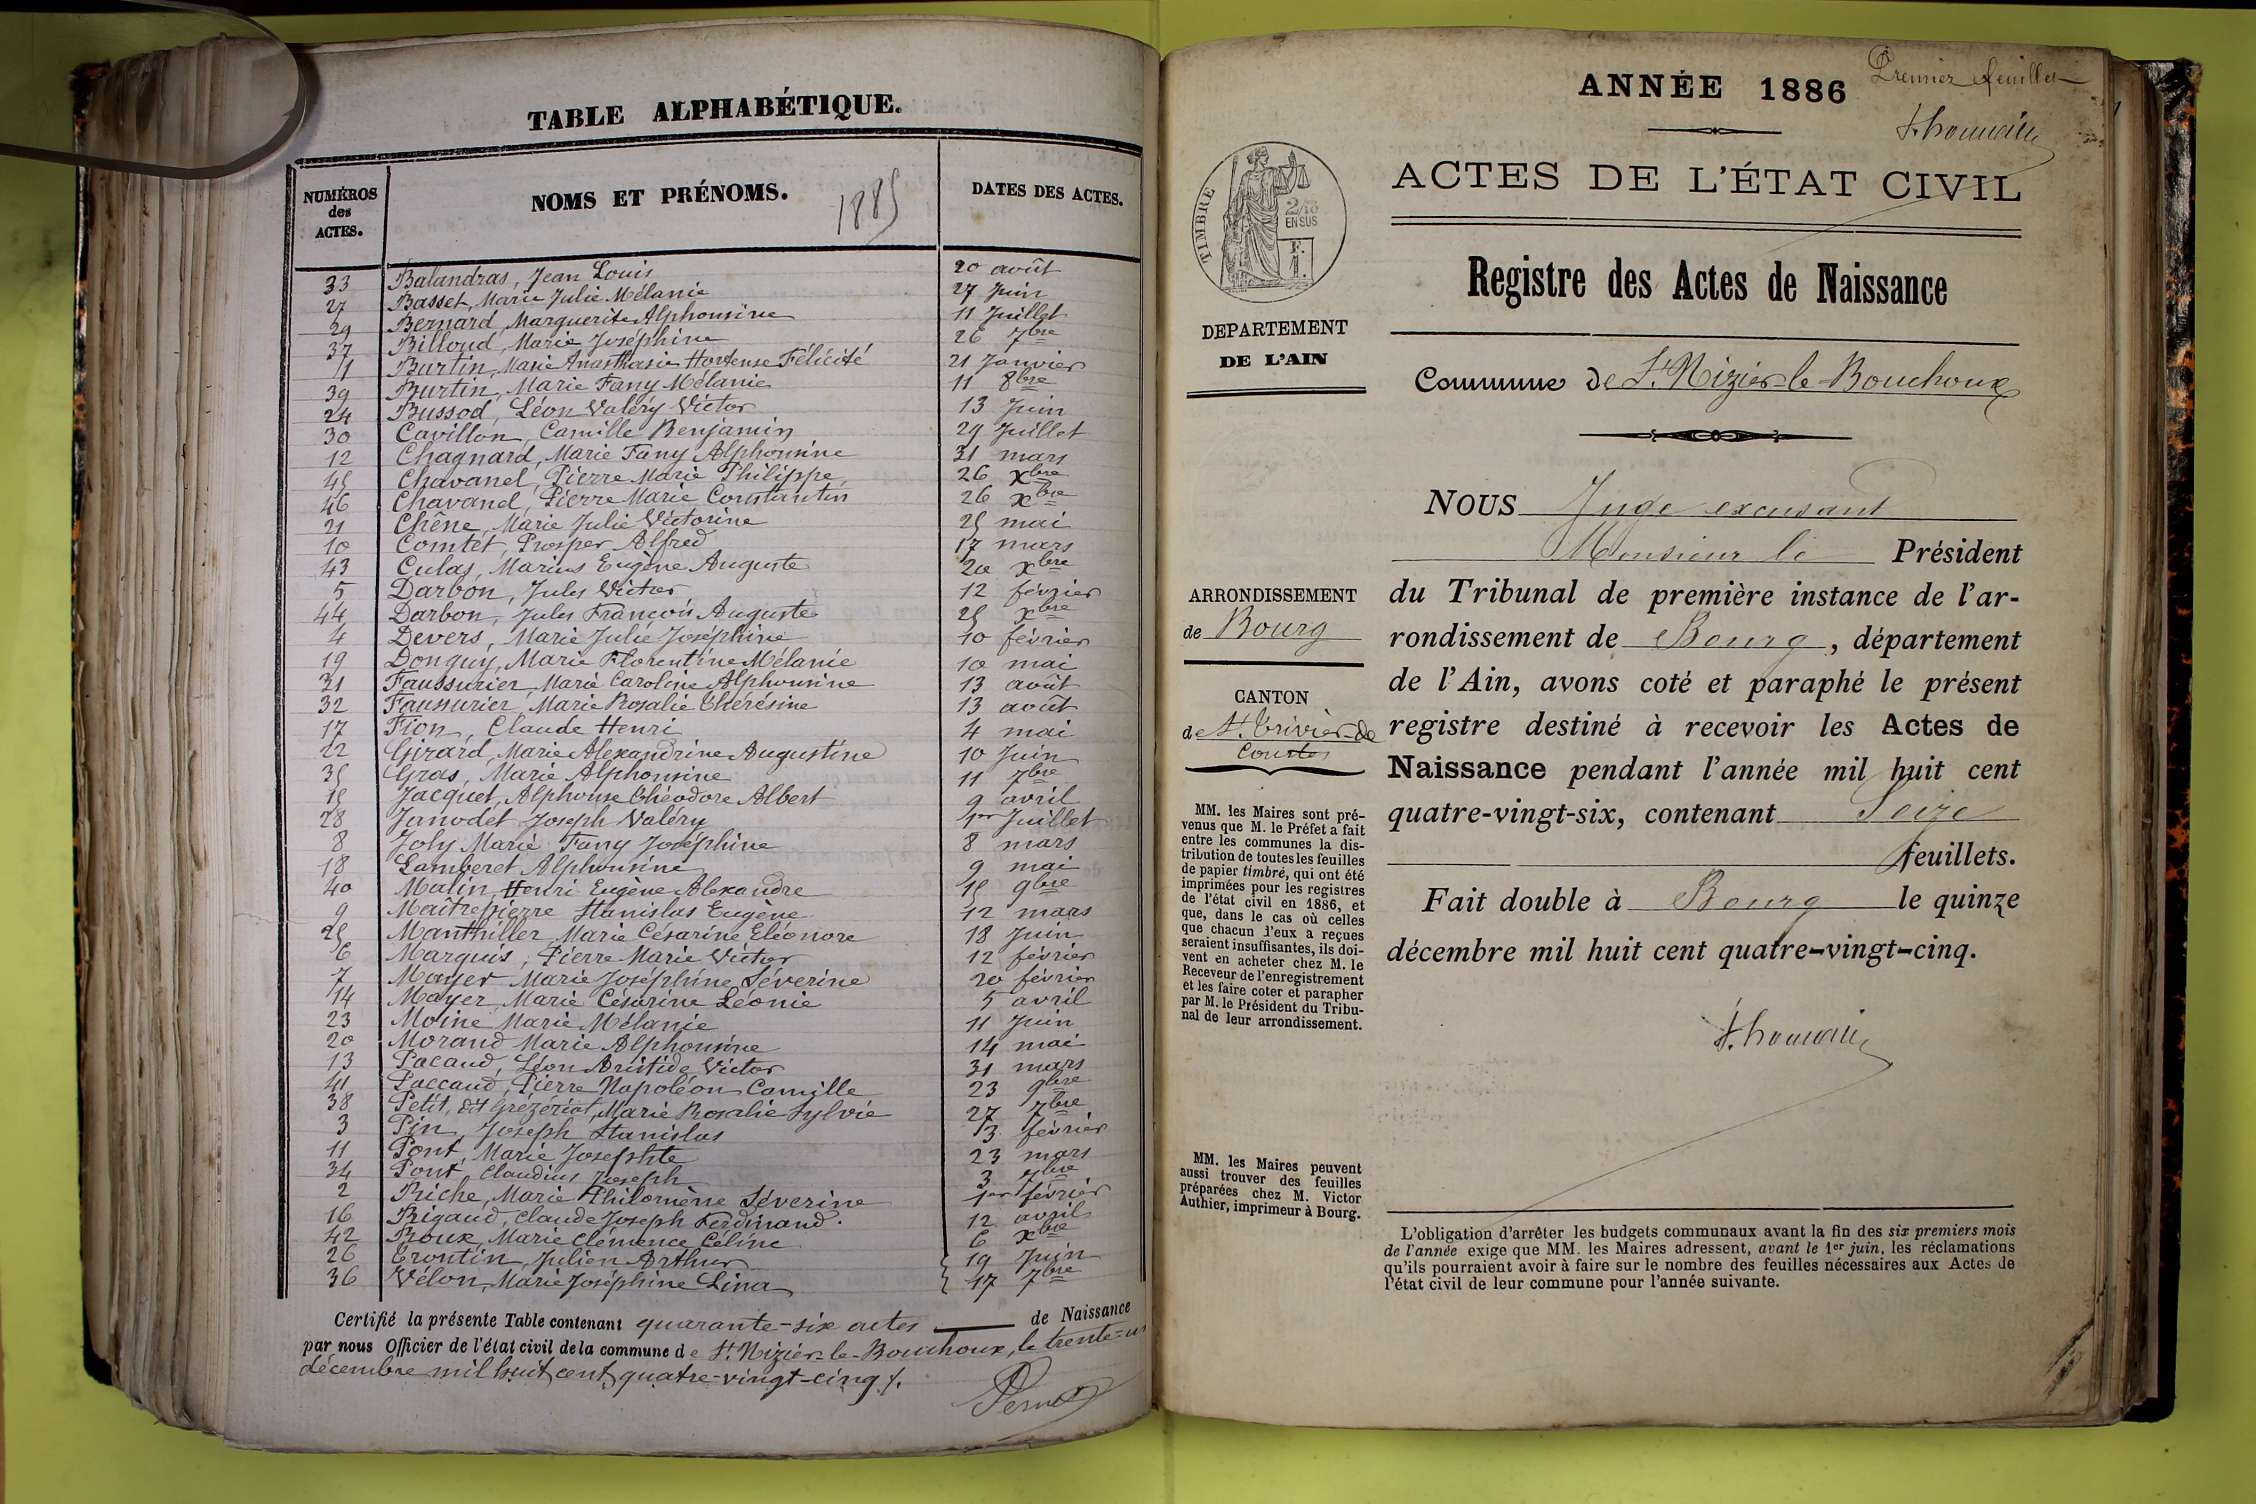 TABLE ALPHABÉTIQUE.
NUMÉROS des ACTES. NOMS ET PRÉNOMS. 1885 DATES DES ACTES.
33 Balandras, Jean Louis 20 août
27 Basset, Marie Julie Mélanie 27 Juin
29 Bernard, Marguerite Alphonsine 11 Juillet
37 Billoud, Marie Joséphine 26 7bre
1 Burtin, Marie Anasthasie Hortense Félicité 21 Janvier
39 Burtin, Marie Fany Mélanie 11 8bre
24 Bussod, Léon Valéry Victor 13 Juin
30 Cavillon, Camille Benjamin 29 Juillet
12 Chagnard, Marie Fany Alphonsine 31 mars
45 Chavanel, Pierre Marie Philippe, 26 Xbre
46 Chavanel, Pierre Marie Constantin 26 Xbre
21 Chêne, Marie Julie Victorine 25 mai
10 Comtet, Prosper Alfred 17 mars
43 Culas, Marius Eugène Auguste 20 Xbre
5 Darbon, Jules Victor 12 février
44 Darbon, Jules François Auguste 25 Xbre
4 Devers, Marie Julie Joséphine 10 février
19 Donguy, Marie Florentine Mélanie 10 mai
31 Faussurier, Marie Caroline Alphonsine 13 août
32 Faussurier, Marie Rosalie Thérésine 13 août
17 Fion, Claude Henri 4 mai
22 Girard, Marie Alexandrine Augustine 10 Juin
35 Gras, Marie Alphonsine 11 7bre
15 Jacquet, Alphonse Théodore Albert 9 avril
28 Janodet Joseph Valéry 1er Juillet
8 Joly Marie Fany Joséphine 8 mars
18 Lamberet Alphonsine 9 mai
40 Malin, Henri Eugène Alexandre 15 9bre
9 Maîtrepierre Stanislas Eugène 12 mars
25 Manthiller, Marie Césarine Eléonore 18 Juin
6 Marquis, Pierre Marie Victor 12 février
7 Mayer Marie Joséphine Séverine 20 février
14 Mayer, Marie Césarine Léonie 5 avril
23 Moine Marie Mélanie 11 Juin
20 Morand Marie Alphonsine 14 mai
13 Pacaud, Léon Aristide Victor 31 mars
41 Paccaud, Pierre Napoléon Camille 23 9bre
38 Petit, dit Grézériat, Marie Rosalie Sylvie 27 7bre
3 Pin, Joseph Stanislas 3 février
11 Pont, Marie Josephte 23 mars
34 Pont, Claudius Joseph 3 7bre
2 Riche, Marie Philomène Séverine 1er février
16 Rigaud, Claude Joseph Ferdinand. 12 avril
42 Roux, Marie Clémence Céline 6 Xbre
26 Trontin, Julien Arthur 19 Juin
36 Vélon, Marie Joséphine Lina 17 7bre
Certifié la présente Table contenant quarante-six actes de Naissance
par nous Officier de l'état civil de la commune de St. Nizier-le-Bouchoux, le trente-un
décembre mil huit cent quatre-vingt-cinq /.
Premier feuillet
ANNÉE 1886
ACTES DE L'ÉTAT CIVIL
TIMBRE
2/10
EN SUS
F.
1
Registre des Actes de Naissance
DEPARTEMENT
DE L'AIN
Commune de St. Nizier-le-Bouchoux
NOUS Juge excusant
Monsieur le Président
du Tribunal de première instance de l'ar-
rondissement de Bourg, département
de l'Ain, avons coté et paraphé le présent
registre destiné à recevoir les Actes de
Naissance pendant l'année mil huit cent
quatre-vingt-six, contenant Seize
feuillets.
Fait double à Bourg le quinze
décembre mil huit cent quatre-vingt-cinq.
ARRONDISSEMENT
de Bourg
CANTON
de St. Trivier-de
Courtes
MM. les Maires sont pré-
venus que M. le Préfet a fait
entre les communes la dis-
tribution de toutes les feuilles
de papier timbré, qui ont été
imprimées pour les registres
de l'état civil en 1886, et
que, dans le cas où celles
que chacun d'eux a reçues
seraient insuffisantes, ils doi-
vent en acheter chez M. le
Receveur de l'enregistrement
et les faire coter et parapher
par M. le Président du Tribu-
nal de leur arrondissement.
MM. les Maires peuvent
aussi trouver des feuilles
préparées chez M. Victor
Authier, imprimeur à Bourg.
L'obligation d'arrêter les budgets communaux avant la fin des six premiers mois
de l'année exige que MM. les Maires adressent, avant le 1er juin, les réclamations
qu'ils pourraient avoir à faire sur le nombre des feuilles nécessaires aux Actes de
l'état civil de leur commune pour l'année suivante.